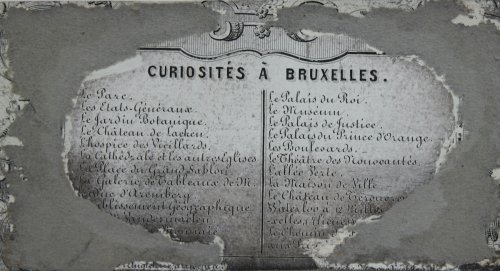 CURIOSITÉS À BRUXELLES.
Le Parc.
Les Etats-Généraux.
Le Jardin Botanique.
Le Château de Laeken.
L'hospice des Vieillards.
La Cathédrale et les autres églises
La Place du Grand Sablon
La Galerie de Tableaux de M.
Duc d'Aremberg
Etablissement Géographique
Le Palais du Roi.
Le Muséum.
Le Palais de Justice.
Le Palais du Prince d'Orange.
Les Boulevards.
Le Théâtre des Nouveautés.
L'allée Verte.
La Maison de Ville
Le Château de
Waterloo à
Le Chemin